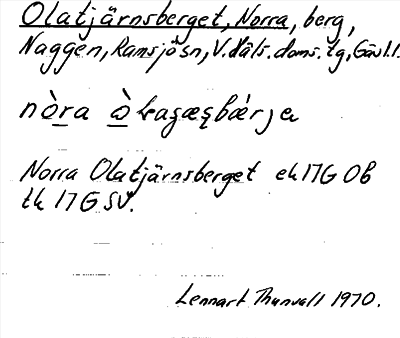 Olatjärnsberget, Norra, berg,
Naggen, Ramsjösn, V. Häls. doms. tg, Gävl. l.
nòra
Norra Olatjärnsberget ek 17G 0b
tk 17G SV.
Lennart Thunvall 1970.